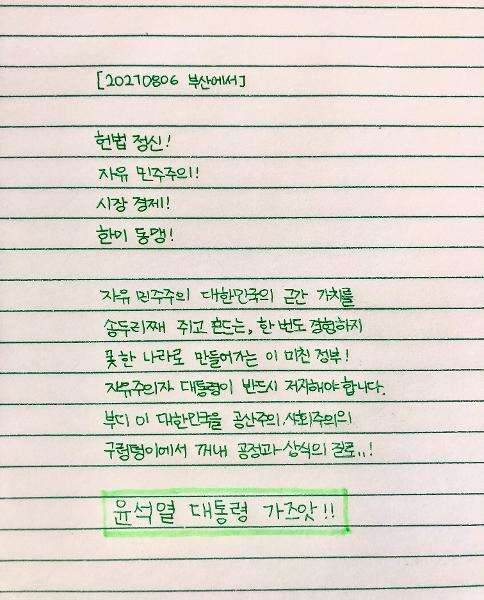 [20210806 부산에서]
헌법 정신!
자유 민주주의!
시장 경제!
한미 동맹!
자유 민주주의 대한민국의 근간 가치를
송두리째 쥐고 흔드는, 한 번도 경험하지
못한 나라로 만들어가는 이 미친 정부!
자유주의자 대통령이 반드시 저지해야 합니다.
부디 이 대한민국을 공산주의, 사회주의의
구렁텅이에서 꺼내 공정과 상식의 길로..!
윤석열 대통령 가즈앗!!